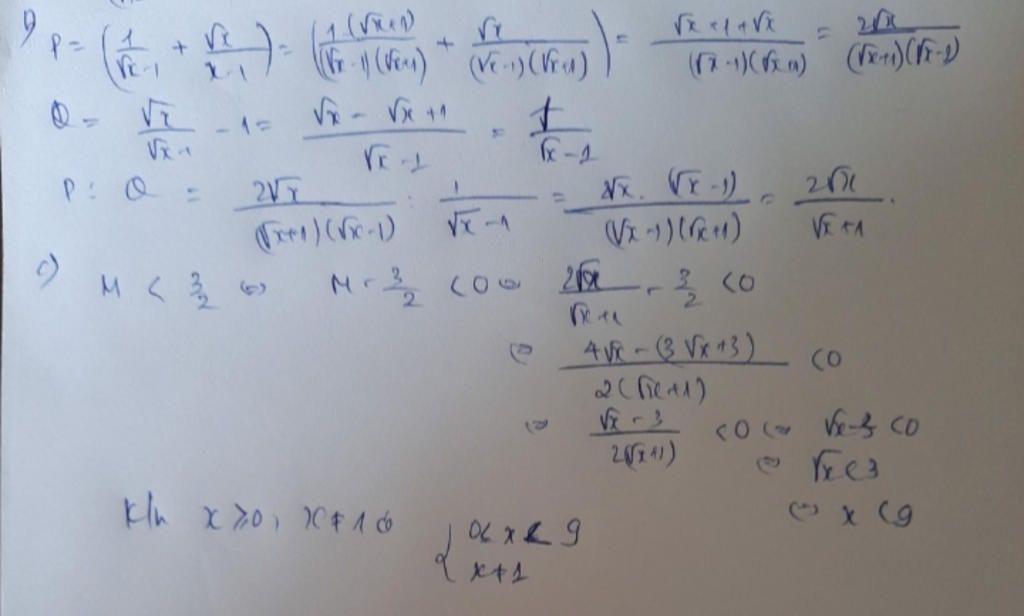 b) P = (1/(√x-1) + √x/(x-1)) = (1(√x+1)/((√x-1)(√x+1)) + √x/((√x-1)(√x+1))) = (√x+1+√x)/((√x-1)(√x+1)) = 2√x/((√x+1)(√x-1))
Q = √x/(√x-1) - 1 = (√x-√x+1)/(√x-1) = 1/(√x-1)
P : Q = 2√x/((√x+1)(√x-1)) : 1/(√x-1) = 2√x.(√x-1)/((√x-1)(√x+1)) = 2√x/(√x+1).
c) M < 3/2 ⇔ M - 3/2 < 0 ⇔ 2√x/(√x+1) - 3/2 < 0
⇔ (4√x-(3√x+3))/(2(√x+1)) < 0
⇔ (√x-3)/(2(√x+1)) < 0 ⇔ √x-3 < 0
⇔ √x < 3
⇔ x < 9
x ≥ 0, x ≠ 1 { 0 < x < 9
x ≠ 1